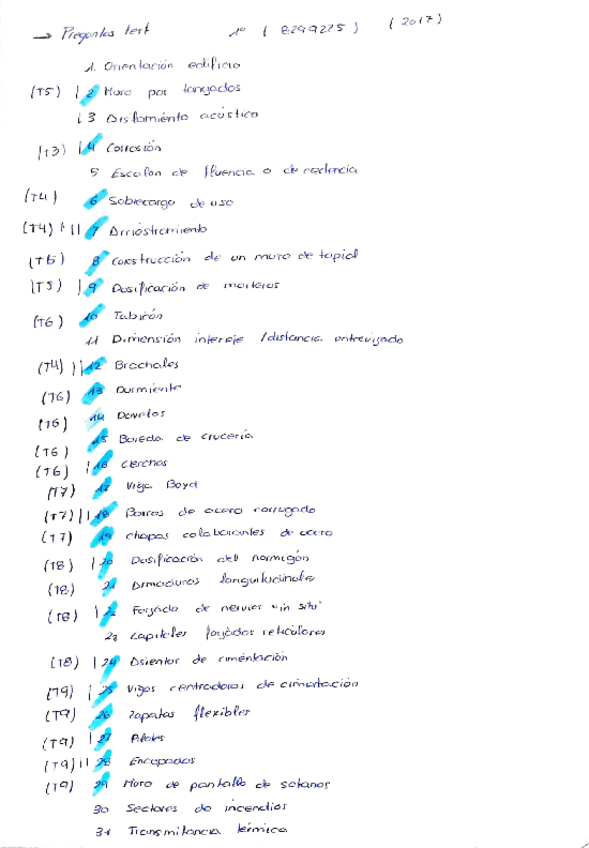 → Preguntas test 1º ( 8299225 ) ( 2017 )
1. Orientación edificio
(T5) | 2 Muro por tongados
| 3 Aislamiento acústico
(T3) | 4 Corrosión
5 Escalon de fluencia o de cedencia
(T4) 6 Sobrecarga de uso
(T4) | || 7 Arriostramiento
(T5) 8 Construcción de un muro de tapial
(T5) | 9 Dosificación de morteros
(T6) 10 Tabicón
11 Dimensión intereje / distancia entrevigado
(T4) || 12 Brochales
(T6) 13 Durmiente
(T6) 14 Dovelas
(T6) 15 Boveda de crucería
(T6) | 16 Cerchas
(T7) 17 Viga Boyd
(T7) || 18 Barras de acero corrugado
(T7) 19 chapas colaborantes de acero
(T8) | 20 Dosificación del hormigón
(T8) 21 Armaduras longuitudinales
(T8) | 22 Forjado de nervios "in situ"
23 Capiteles forjados reticulares
(T8) | 24 Asientos de cimentación
(T9) | 25 Vigas centradoras de cimentación
(T9) 26 Zapatas flexibles
(T9) | 27 Pilotes
(T9) || 28 Encepados
(T9) 29 Muro de pantalla de sotanos
30 Sectores de incendios
31 Transmitancia térmica